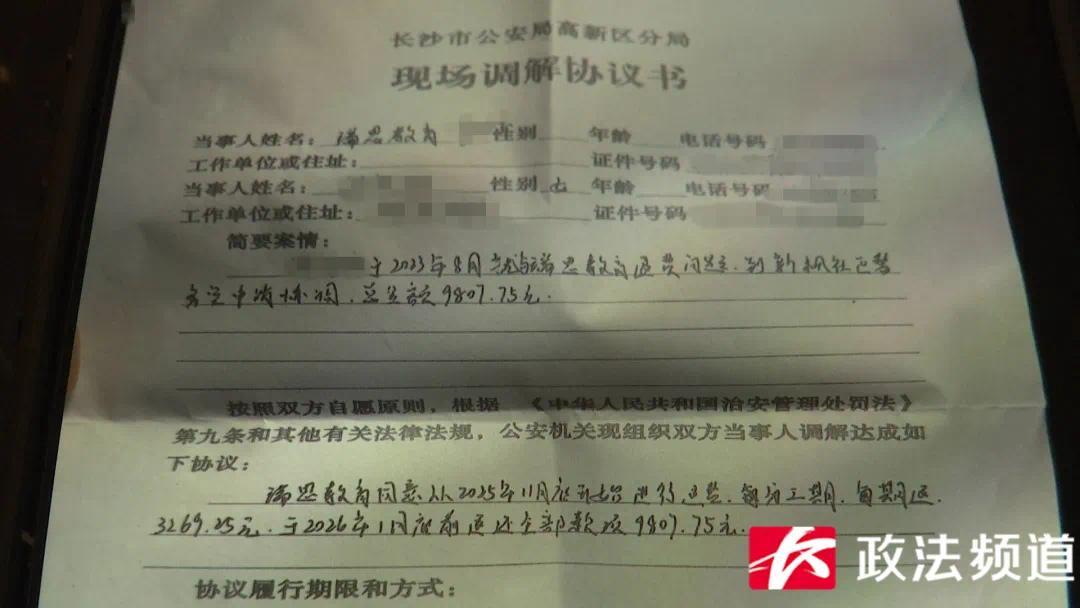 长沙市公安局高新区分局
现场调解协议书
当事人姓名：瑞思教育 性别 年龄 电话号码
工作单位或住址： 证件号码
当事人姓名： 性别 女 年龄 电话号码
工作单位或住址： 证件号码
简要案情：
于2023年8月 与瑞思教育退费问题，到
申请协调，总金额9807.75元.
按照双方自愿原则，根据 《中华人民共和国治安管理处罚法》
第九条和其他有关法律法规，公安机关现组织双方当事人调解达成如
下协议：
瑞思教育同意从2025年11月底开始进行退费，每分三期，每期退
3269.25元，于2026年1月底前退还全部款项9807.75元.
协议履行期限和方式：
政法频道